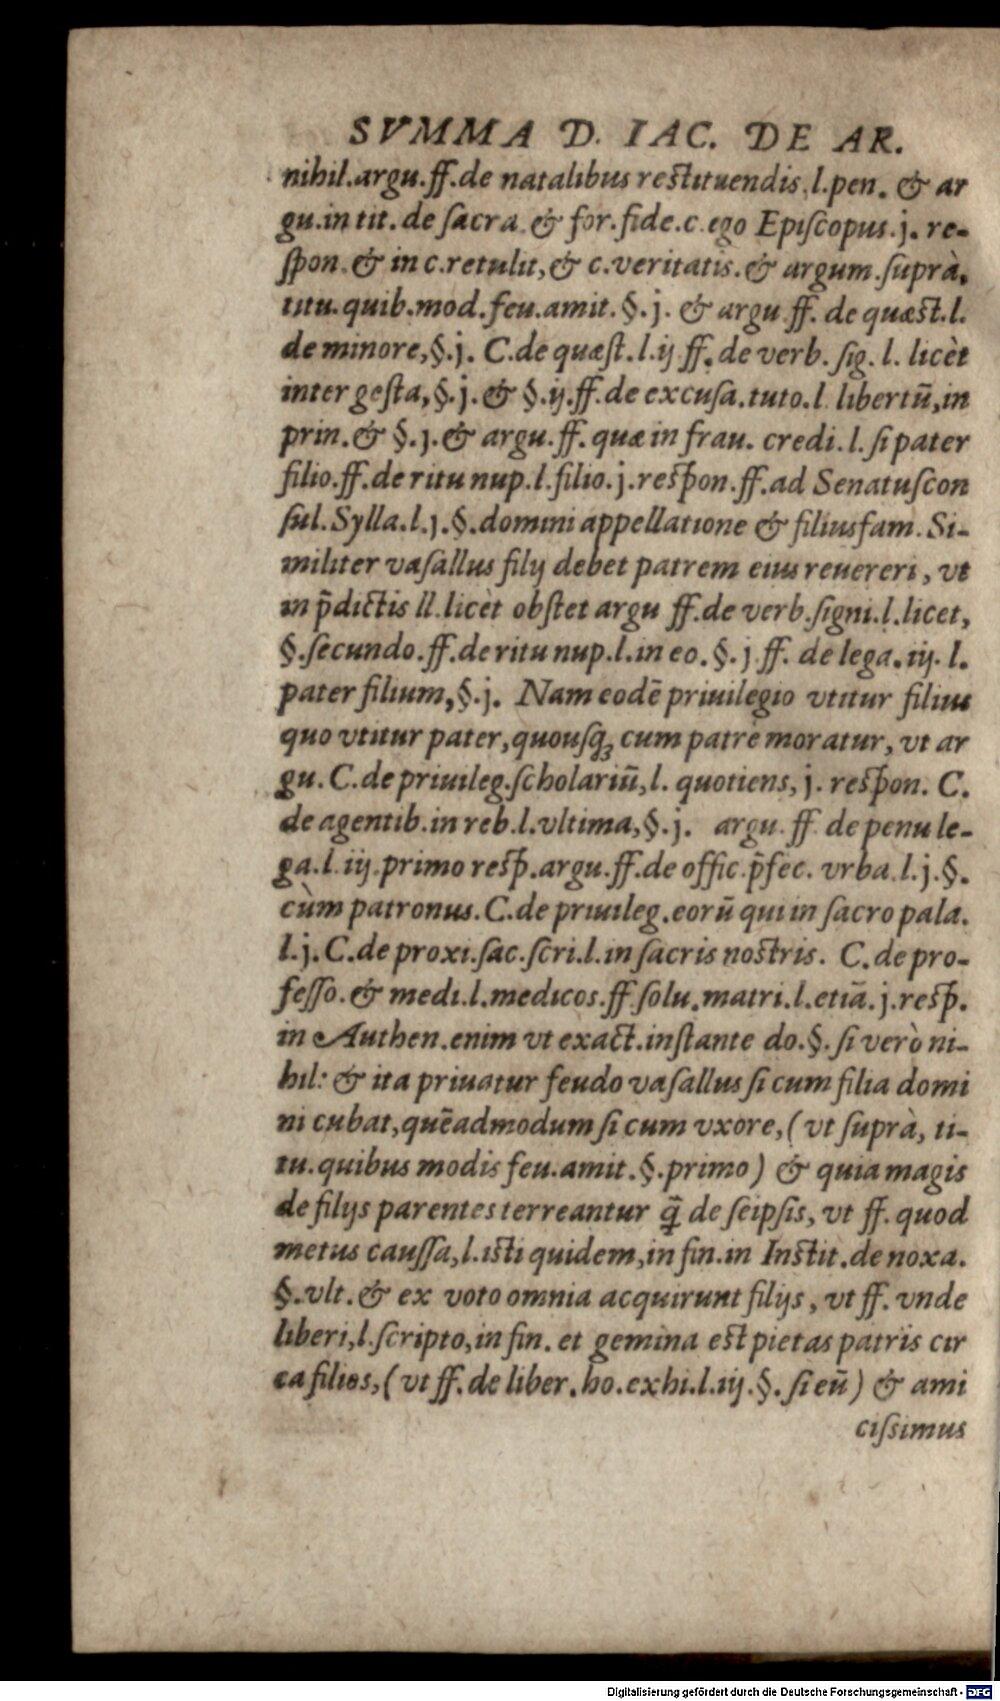 SVMMA D. IAC. DE AR.
nihil.argu.ff.de natalibus restituendis.l.pen. & ar
gu.in tit. de sacra. & for.fide.c.ego Episcopus.j. re-
spon. & in c.retulit, & c.veritatis. & argum.suprà,
titu.quib.mod.feu.amit.§.j. & argu ff. de quæst.l.
de minore,§.j. C.de quæst.l.ij ff.de verb. sig. l. licèt
inter gesta,§.j. & §.ij.ff.de excusa.tuto.l libertū,in
prin. & §.j. & argu.ff. quæ in frau. credi.l. si pater
filio.ff.de ritu nup.l.filio.j.respon.ff.ad Senatuscon
sul.Sylla.l.j.§.domini appellatione & filiusfam. Si-
militer vasallus filij debet patrem eius reuereri, vt
in p̄dictis ll.licèt obstet argu ff.de verb.signi.l.licet,
§.secundo.ff.de ritu nup.l.in eo.§.j ff. de lega.iij. l.
pater filium,§.j. Nam eodē priuilegio vtitur filius
quo vtitur pater,quousq; cum patre moratur, vt ar
gu. C.de priuileg.scholariū,l. quotiens, j. respon. C.
de agentib.in reb.l.vltima,§.j. argu. ff de penu le-
ga.l iij.primo resp.argu.ff.de offic.p̄fec. vrba.l.j.§.
cùm patronus. C.de priuileg.eorū qui in sacro pala.
l.j. C.de proxi.sac.scri.l.in sacris nostris. C.de pro-
fesso. & medi.l.medicos.ff solu.matri.l.etiā.j.resp.
in Authen.enim vt exact.instante do.§. si verò ni-
hil: & ita priuatur feudo vasallus si cum filia domi
ni cubat,quēadmodum si cum vxore, ( vt suprà, ti-
tu.quibus modis feu.amit.§.primo) & quia magis
de filijs parentes terreantur q̄ de seipsis, vt ff. quod
metus caussa,l.isti quidem,in fin.in Instit.de noxa.
§.vlt. & ex voto omnia acquirunt filijs, vt ff. vnde
liberi,l.scripto,in fin. et gemina est pietas patris cir
ca filios, ( vt ff. de liber. ho.exhi.l.iij.§. si eū) & ami
cissimus
Digitalisierung gefördert durch die Deutsche Forschungsgemeinschaft - DFG